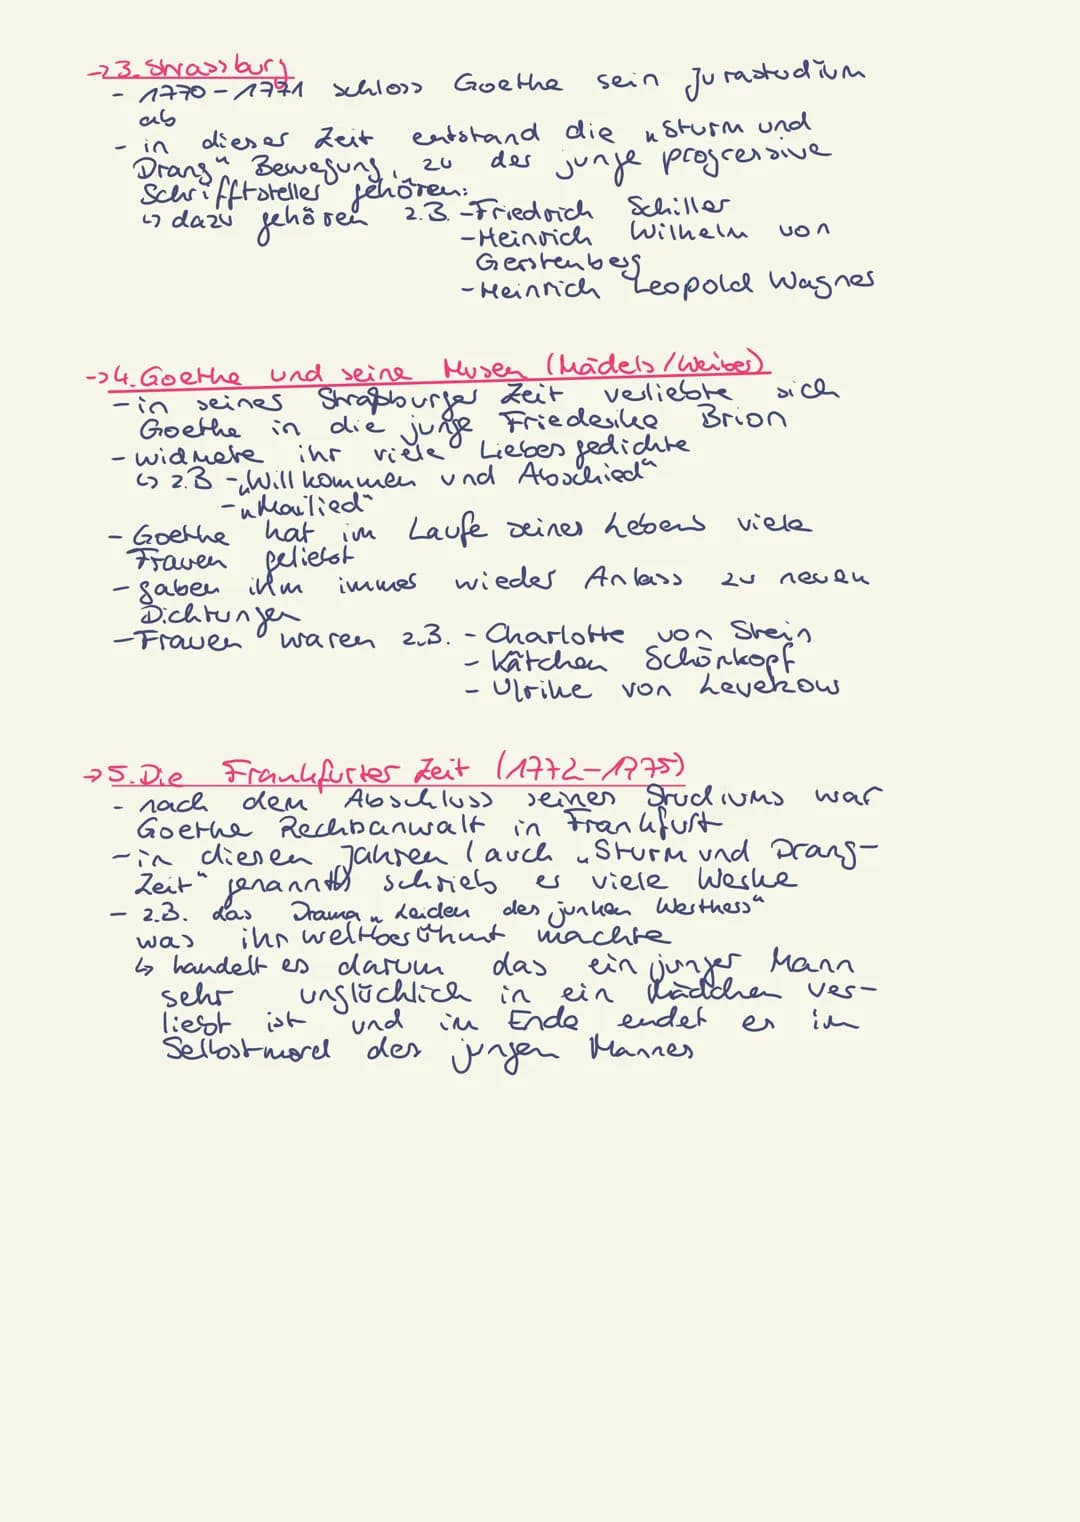 → 3. Strassburg
- 1770 - 1771 schloss Goethe sein Jurastudium
ab
- in dieser Zeit entstand die „Sturm und
Drang" Bewegung, zu der junge progressive
Schrifftsteller gehören:
↳ dazu gehören z.B. - Friedrich Schiller
- Heinrich Wilhelm von
Gerstenberg
- Heinrich Leopold Wagner
-> 4. Goethe und seine Musen (Mädels/Weiber)
- in seiner Straßburger Zeit verliebte sich
Goethe in die junge Friederike Brion
- widmete ihr viele Liebesgedichte
↳ z.B - „Willkommen und Abschied"
- „Mailied"
- Goethe hat im Laufe seines Lebens viele
Frauen geliebt
- gaben ihm immer wieder Anlass zu neuen
Dichtungen
- Frauen waren z.B. - Charlotte von Stein
- Kätchen Schönkopf
- Ulrike von Levekow
→ 5. Die Frankfurter Zeit (1772-1775)
- nach dem Abschluss seines Studiums war
Goethe Rechtsanwalt in Frankfurt
- in diesen Jahren (auch „Sturm und Drang-
Zeit" genannt) schrieb er viele Werke
- z.B. das Drama „Leiden des junken Werthers"
was ihn weltberühmt machte
↳ handelt es darum das ein junger Mann
sehr unglücklich in ein Mädchen ver-
liebt ist und im Ende endet es im
Selbstmord des jungen Mannes